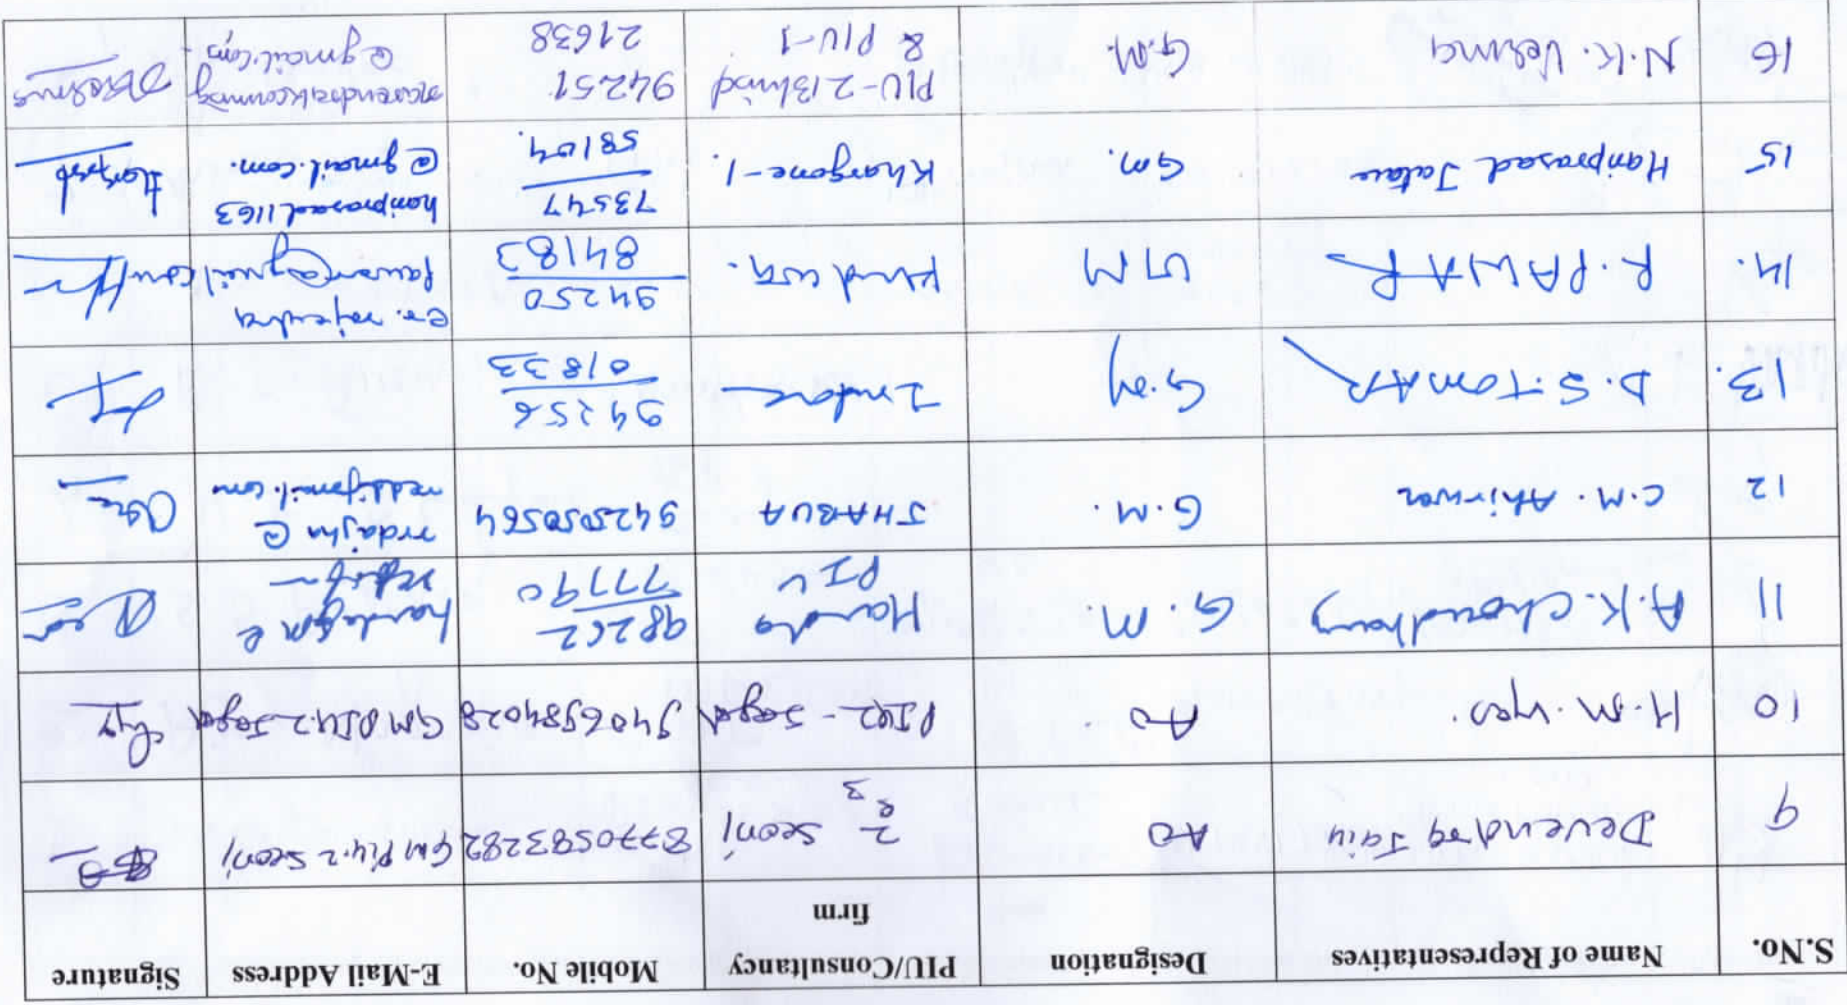 S.No. Name of Representatives Designation PIU/Consultancy firm Mobile No. E-Mail Address Signature
9 Devendra Jain AO 2 & 3 Seoni 8770583282 GM Piu-2 Seoni
10 H.M. AO PIU2 - Sagar GMPIU-2 Sagar
11 A.K. Choudhary G.M. Harda PIU 98262 77190
12 C.M. Ahirwar G.M. JHABUA 9425050564 rrdajha@
13. D.S. TOMAR G.M Indore 94256 01833
14. R. PAWAR GM Khandwa. 94250 84183 er.rajendra pawar@gmail.com
15 Hariprasad Jatav Gm. Khargone-1. 73547 58104. hariprasad1163 @gmail.com.
16 N.K. Verma G.M. PIU-2 Bhind & PIU-1 94251 21638 @gmail.com